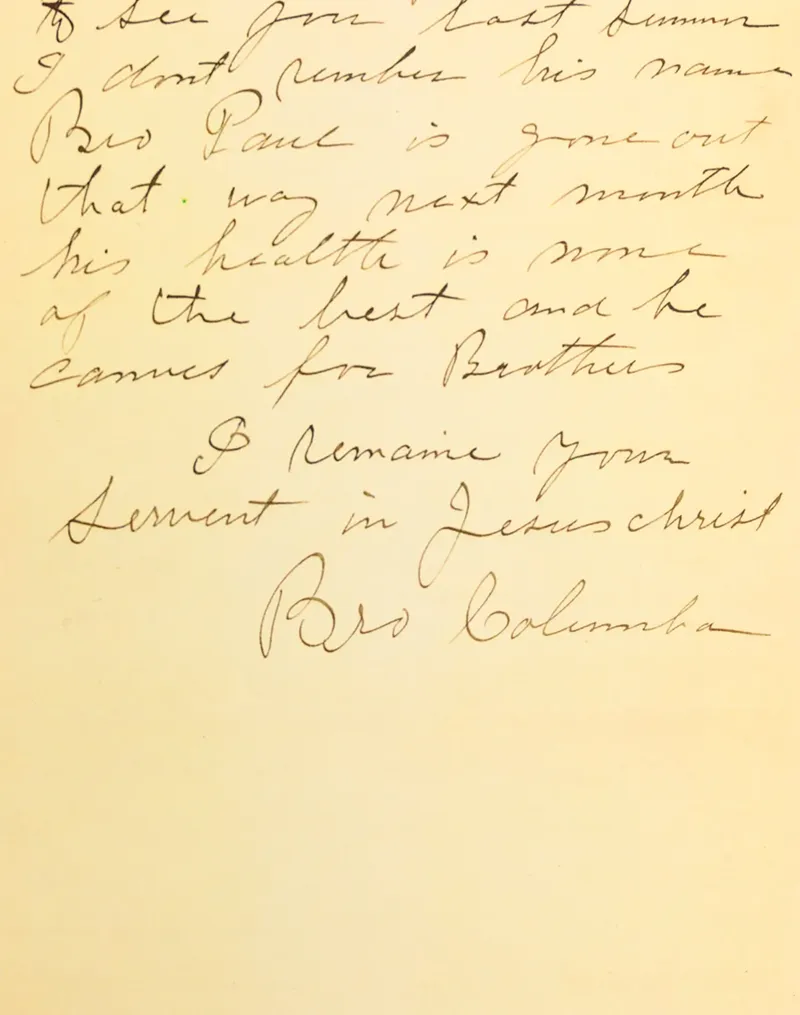 to see you last summer
I dont rember his name
Bro Paul is gone out
that way next month
his health is none
of the best and he
canves for Brothers
I remaine your
servent in Jesus christ
Bro Columba